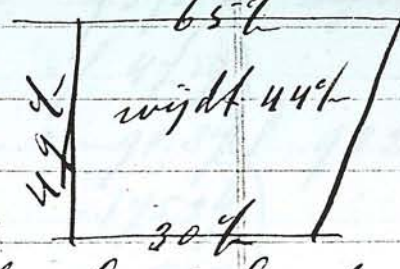 65 %
49 %
wijdt 44 %
30 %